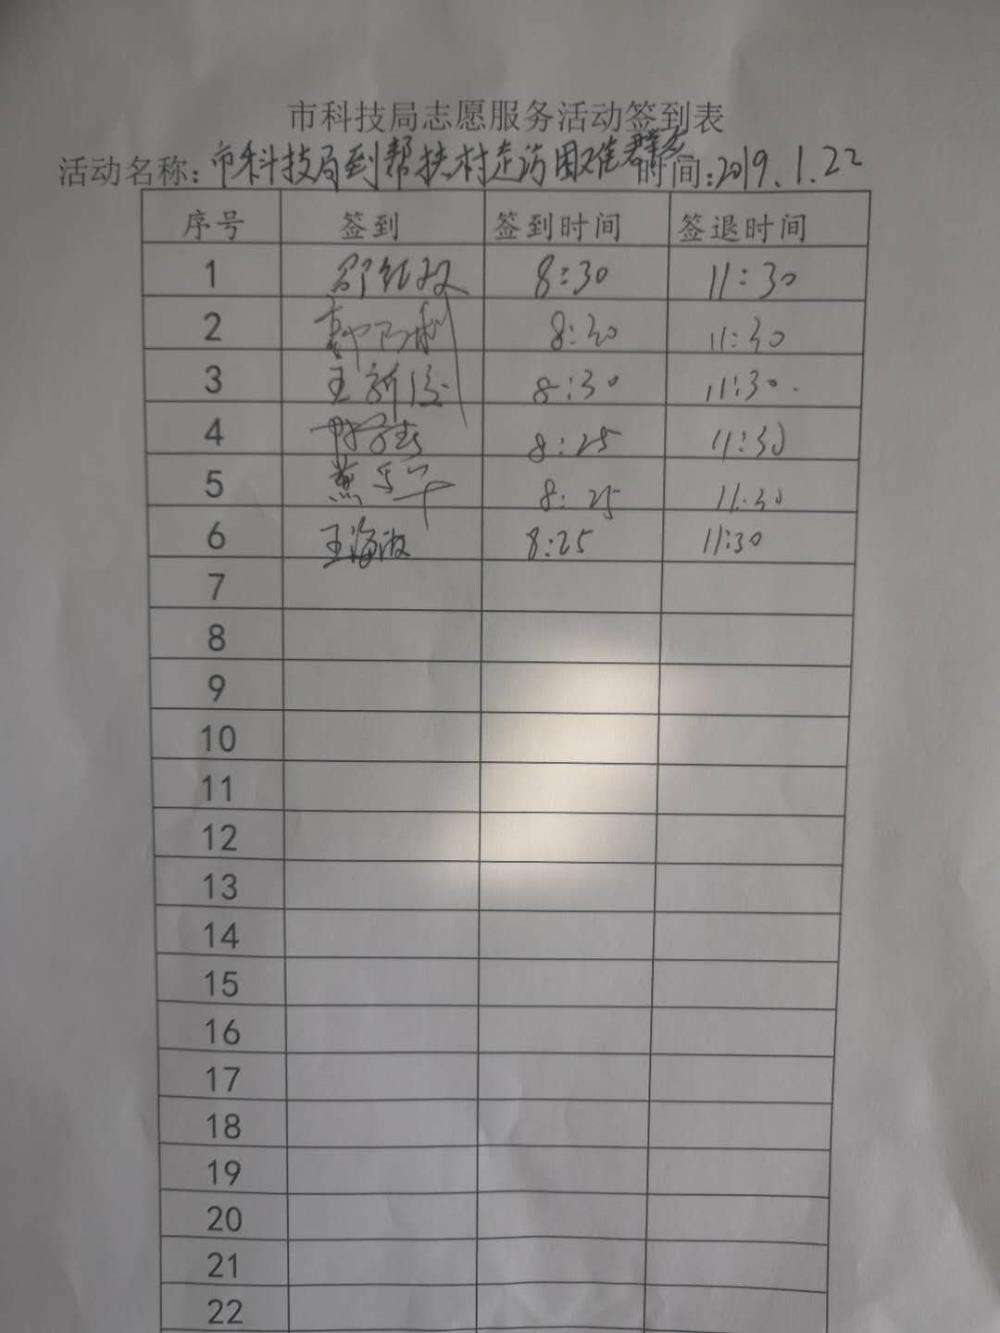 市科技局志愿服务活动签到表
活动名称:市科技局到帮扶村走访困难群众 时间:2019.1.22
序号 签到 签到时间 签退时间
1 8:30 11:30
2 8:30 11:30
3 王新 8:30 11:30
4 8:25 11:30
5 8:25 11:30
6 王海波 8:25 11:30
7
8
9
10
11
12
13
14
15
16
17
18
19
20
21
22